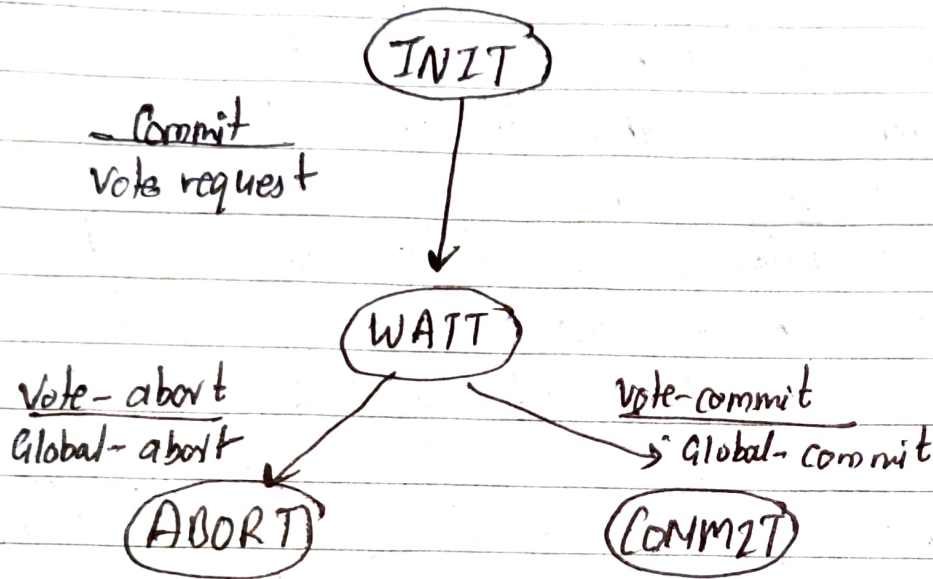 INIT
Commit
Vote request
WAIT
Vote-abort
Global-abort
Vote-commit
Global-commit
ABORT
COMMIT